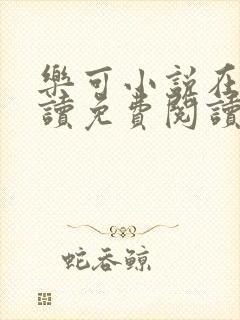 樂可小說在
讀免費閱讀
蛇吞鯨